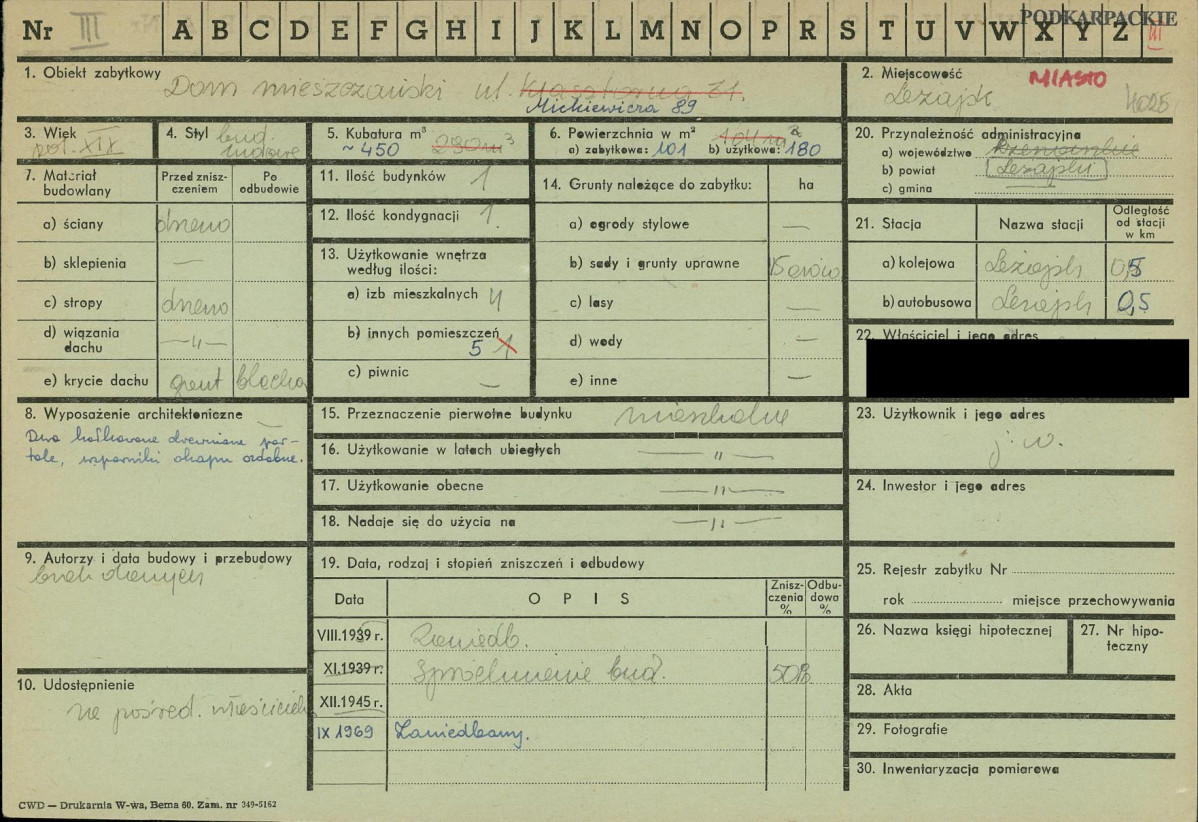 Nr III A B C D E F G H I J K L M N O P R S T U V W X Y Z
PODKARPACKIE
III
1. Obiekt zabytkowy Dom mieszczański ul. Klasztorna 21.
Mickiewicza 89
2. Miejscowość MIASTO
Leżajsk 4025
3. Wiek
poł. XIX
4. Styl bud.
ludowe
5. Kubatura m³
~ 450 290 m³
6. Powierzchnia w m² 104 m²
a) zabytkowa: 101 b) użytkowa: 180
20. Przynależność administracyjna
a) województwo Rzeszowskie
b) powiat Leżajsk
c) gmina
7. Materiał budowlany
Przed zniszczeniem
Po odbudowie
a) ściany drewno
b) sklepienia —
c) stropy drewno
d) wiązania dachu —„—
e) krycie dachu gont blacha
11. Ilość budynków 1
12. Ilość kondygnacji 1.
13. Użytkowanie wnętrza
według ilości:
a) izb mieszkalnych 4
b) innych pomieszczeń
5 1
c) piwnic —
14. Grunty należące do zabytku: ha
a) ogrody stylowe —
b) sady i grunty uprawne 15 arów
c) lasy —
d) wody —
e) inne —
21. Stacja Nazwa stacji Odległość od stacji w km
a) kolejowa Leżajsk 0,5
b) autobusowa Leżajsk 0,5
22. Właściciel i jego adres
8. Wyposażenie architektoniczne
Dwa kołkowane drewniane por-
tale, wsporniki okapu ozdobne.
15. Przeznaczenie pierwotne budynku mieszkalne
16. Użytkowanie w latach ubiegłych —„—
17. Użytkowanie obecne —„—
18. Nadaje się do użycia na —„—
23. Użytkownik i jego adres
j. w.
24. Inwestor i jego adres
9. Autorzy i data budowy i przebudowy
brak danych
19. Data, rodzaj i stopień zniszczeń i odbudowy
Data OPIS Zniszczenia % Odbudowa %
VIII.1939 r. Zaniedb.
XI.1939 r. Spróchnienie bud. 50%
XII.1945 r.
IX 1969 Zaniedbany.
25. Rejestr zabytku Nr
rok miejsce przechowywania
26. Nazwa księgi hipotecznej
27. Nr hipo-
teczny
10. Udostępnienie
za pośred. właściciela
28. Akta
29. Fotografie
30. Inwentaryzacja pomiarowa
CWD — Drukarnia W-wa, Bema 60. Zam. nr 349-5162